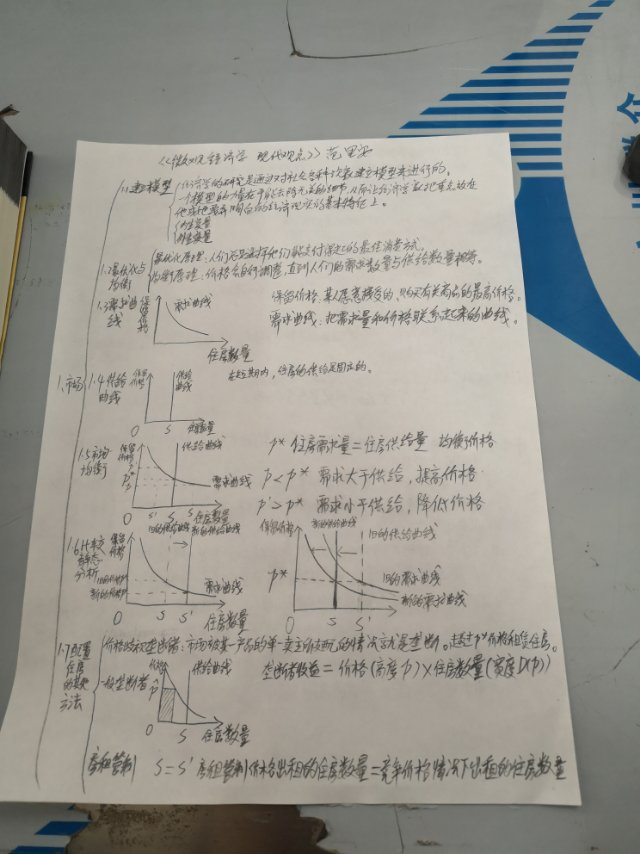 《微观经济学 现代观点》 范里安
1.1建模型
经济学的研究是通过对社会各种现象建立模型来进行的。
一个模型的力量在于能去除无关的细节,从而让经济学家把重点放在
他或她要明白的经济现实的基本特征上。
内生变量
外生变量
1.2最优化与均衡
最优化原理:人们总是选择他们能支付得起的最佳消费方式。
均衡原理:价格会自行调整,直到人们的需求数量与供给数量相等。
1.3需求曲线
保留价格
需求曲线
住房数量
保留价格:某人愿意接受的,购买有关商品的最高价格。
需求曲线:把需求量和价格联系起来的曲线。
1.市场
1.4供给曲线
保留价格
供给曲线
O S 住房数量
在短期内,住房的供给是固定的。
1.5市场均衡
保留价格
供给曲线
需求曲线
P*
O S' S 住房数量
P* 住房需求量=住房供给量 均衡价格
P<P* 需求大于供给,提高价格
P'>P* 需求小于供给,降低价格
1.6比较静态分析
保留价格
旧的供给曲线 新的供给曲线
需求曲线
O S S'
住房数量
保留价格
新的供给曲线
旧的供给曲线
P*
旧的需求曲线
新的需求曲线
O S S'
1.7配置住房的其他方法
价格歧视垄断者:市场被某一产品的单一卖主所支配的情况就是垄断。
一般垄断者
价格
供给曲线
p̂
O S 住房数量
垄断者收益=价格(高度p)×住房数量(宽度D(p))
房租管制
S=S' 房租管制价格出租的住房数量=竞争价格情况下出租的住房数量